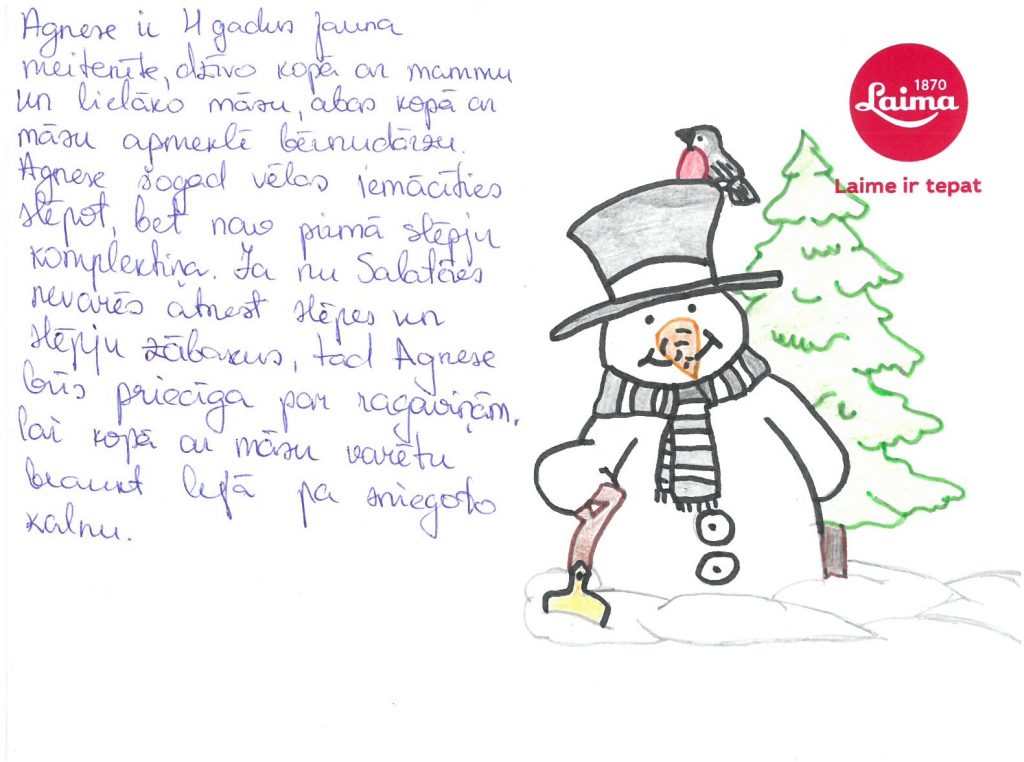 Agnese ir 4 gadus jauna
meitenīte, dzīvo kopā ar mammu
un lielāko māsu, abas kopā ar
māsu apmeklē bērnudārzu.
Agnese šogad vēlas iemācīties
slēpot, bet nav pirmā slēpju
komplektiņa. Ja nu Salatētēs
nevarēs atnest slēpes un
slēpju zābakus, tad Agnese
būs priecīga par ragaviņām,
lai kopā ar māsu varētu
braukt lejā pa sniegoto
kalnu.
1870
Laima
Laime ir tepat